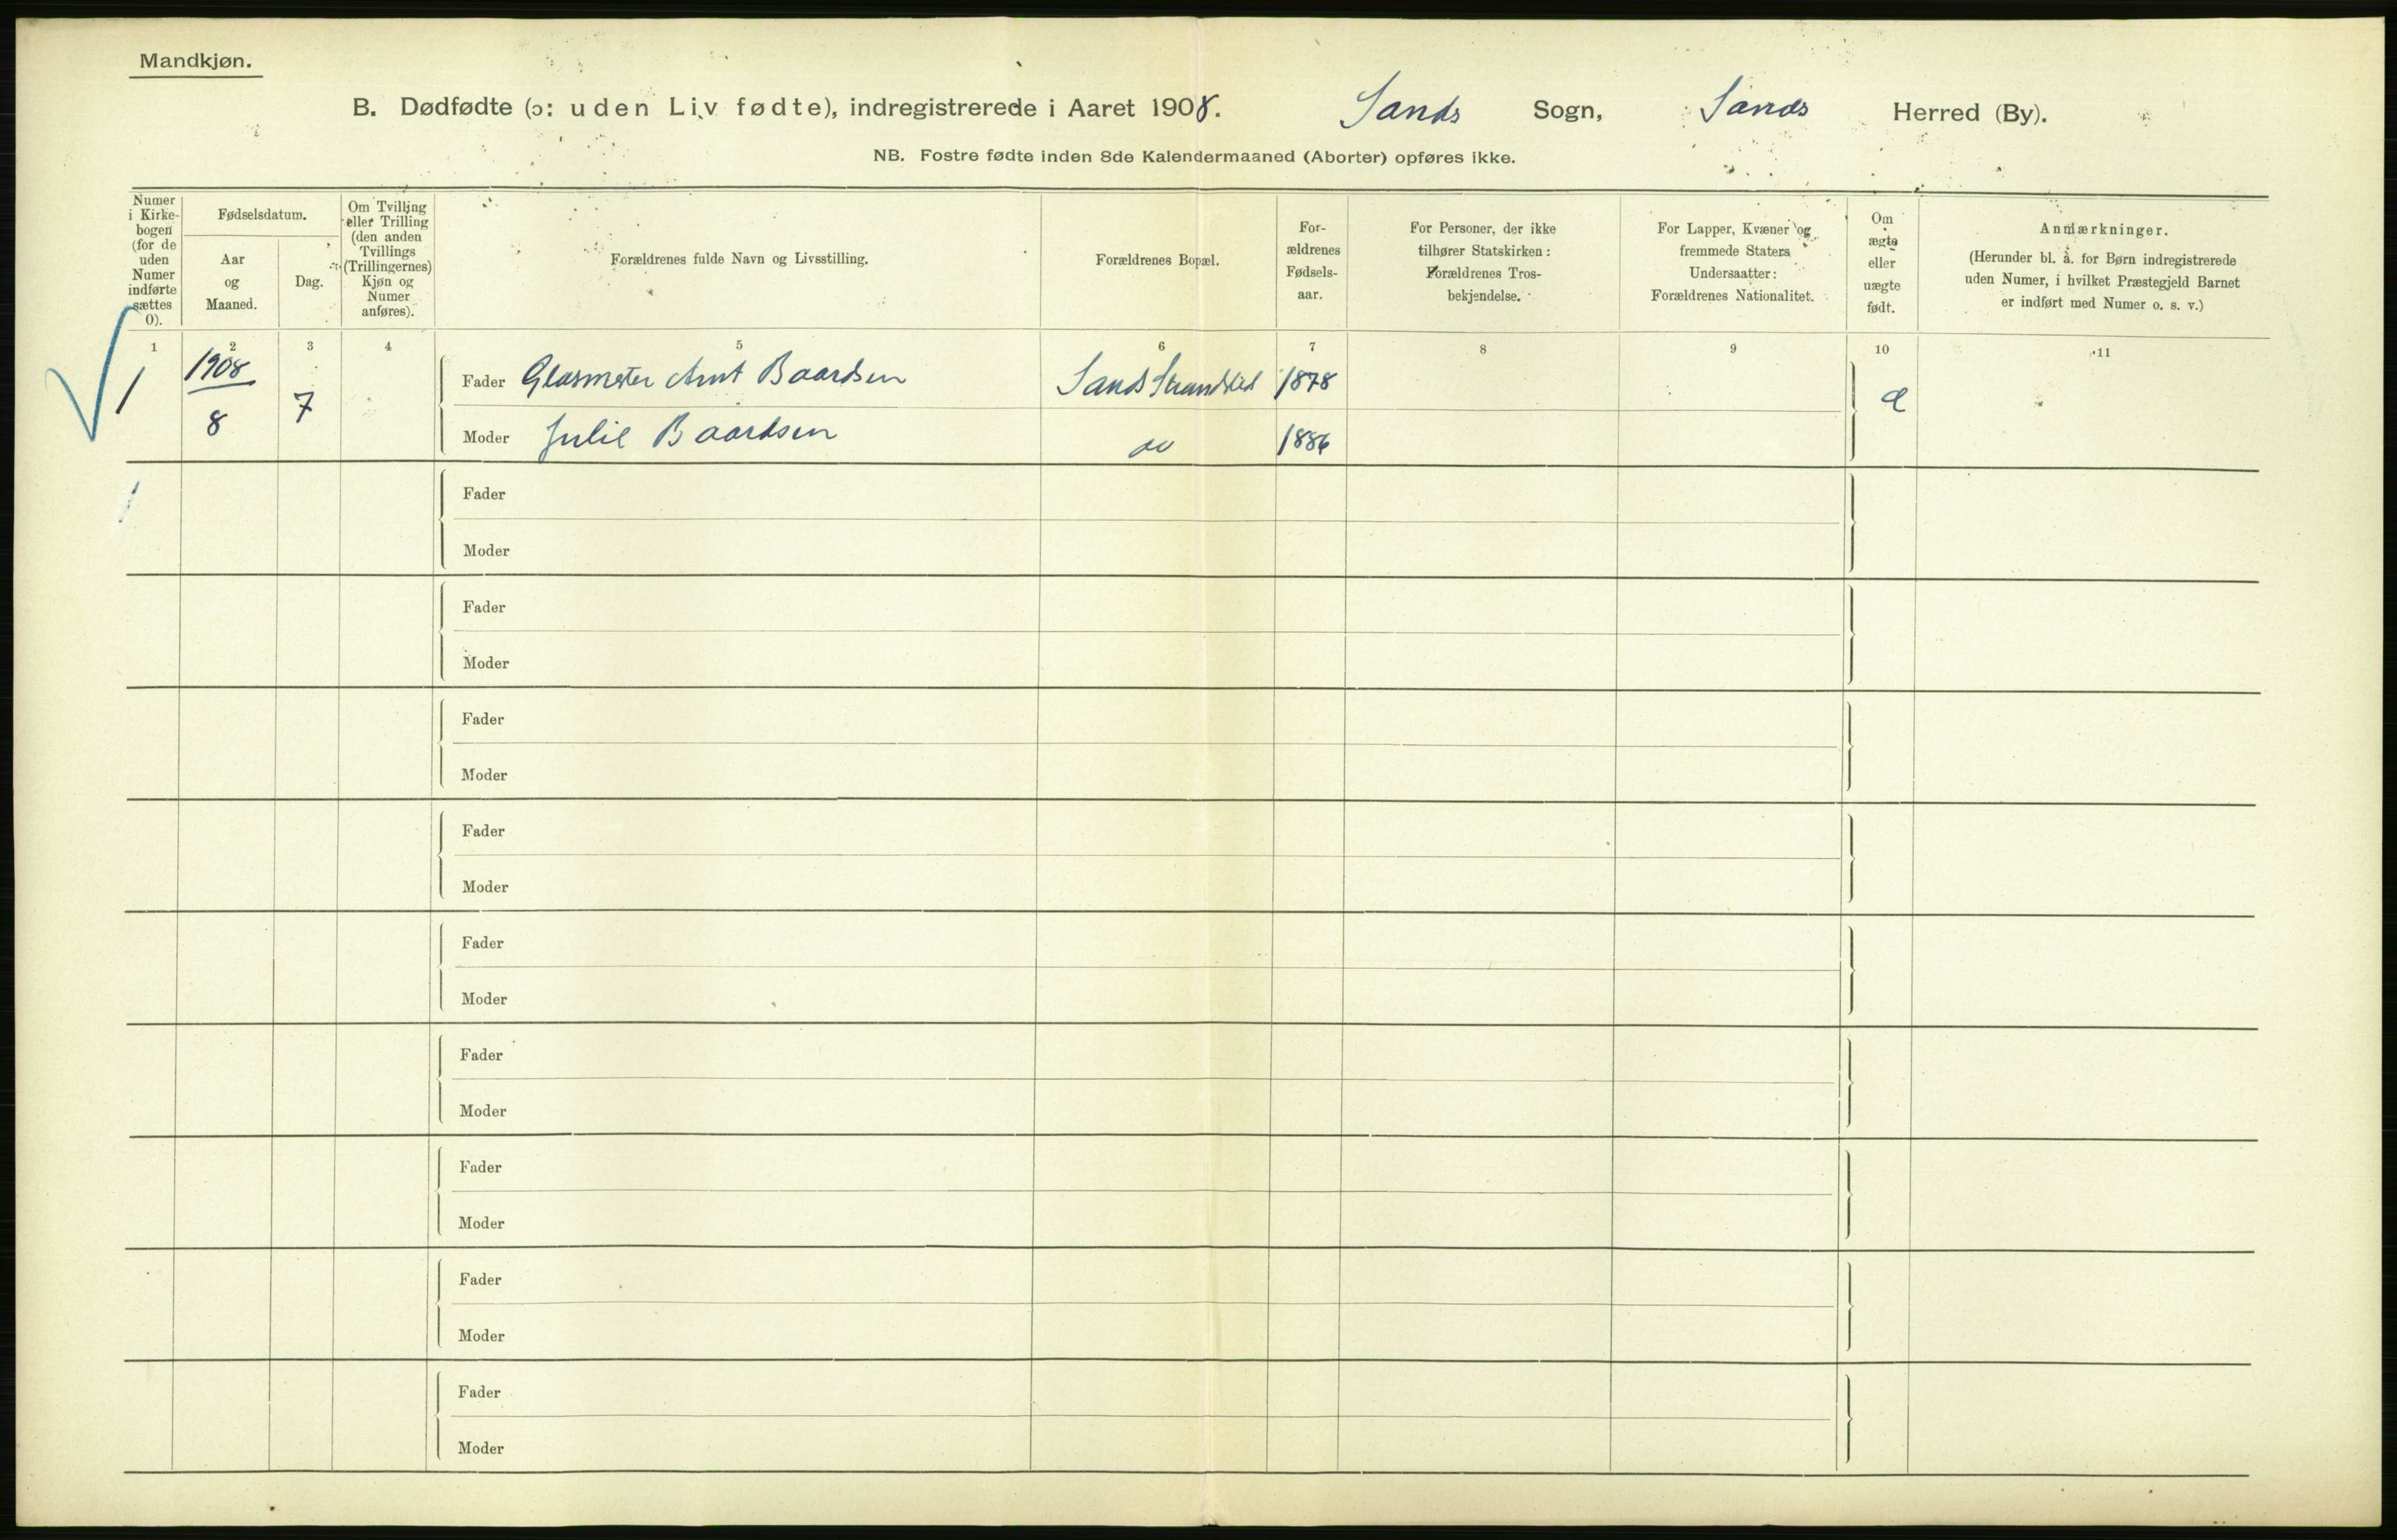 Mandkjøn.
B. Dødfødte (ɔ: uden Liv fødte), indregistrerede i Aaret 1908. Sands Sogn, Sands Herred (By).
NB. Fostre fødte inden 8de Kalendermaaned (Aborter) opføres ikke.
Numer
i Kirke-
bogen
(for de
uden
Numer
indførte
sættes
0).
Fødselsdatum.
Aar
og
Maaned.
Dag.
Om Tvilling
eller Trilling
(den anden
Tvillings
(Trillingernes)
Kjøn og
Numer
anføres).
Forældrenes fulde Navn og Livsstilling.
Forældrenes Bopæl.
For-
ældrenes
Fødsels-
aar.
For Personer, der ikke
tilhører Statskirken:
Forældrenes Tros-
bekjendelse.
For Lapper, Kvæner og
fremmede Staters
Undersaatter:
Forældrenes Nationalitet.
Om
ægte
eller
uægte
født.
Anmærkninger.
(Herunder bl. a. for Børn indregistrerede
uden Numer, i hvilket Præstegjeld Barnet
er indført med Numer o. s. v.)
1 2 3 4 5 6 7 8 9 10 11
1 1908 8 7
Fader Glasmester Arnt Baardsen Sands Strandsted 1878 æ
Moder Julie Baardsen do 1886
Fader
Moder
Fader
Moder
Fader
Moder
Fader
Moder
Fader
Moder
Fader
Moder
Fader
Moder
Fader
Moder
Fader
Moder